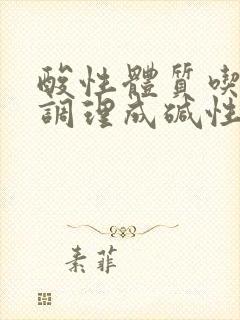 酸性體質喫
調理成碱性
素菲